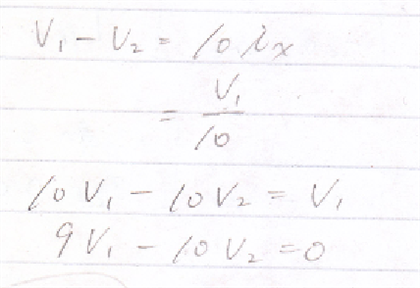 V₁ - V₂ = 10 ix
= V₁/10
10V₁ - 10V₂ = V₁
9V₁ - 10V₂ = 0